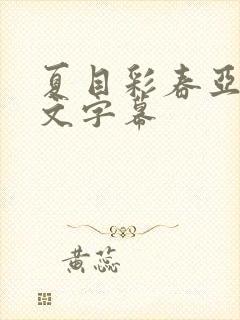 夏目彩春亚
文字幕
黄蕊